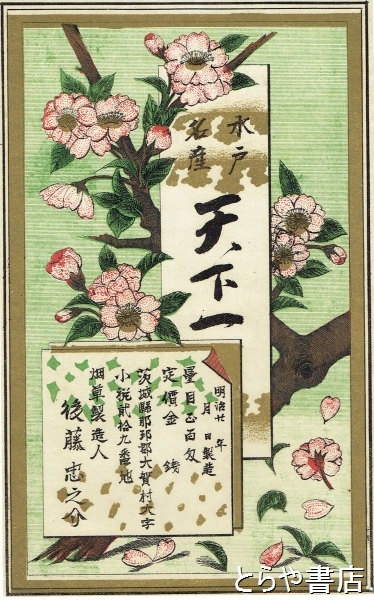 水戸
名産
天下一
明治廿 年
月 日製造
量目正百匁
定價金 錢
茨城縣那珂郡大賀村大字
小祝貳拾九番地
烟草製造人
後藤忠之介
とらや書店